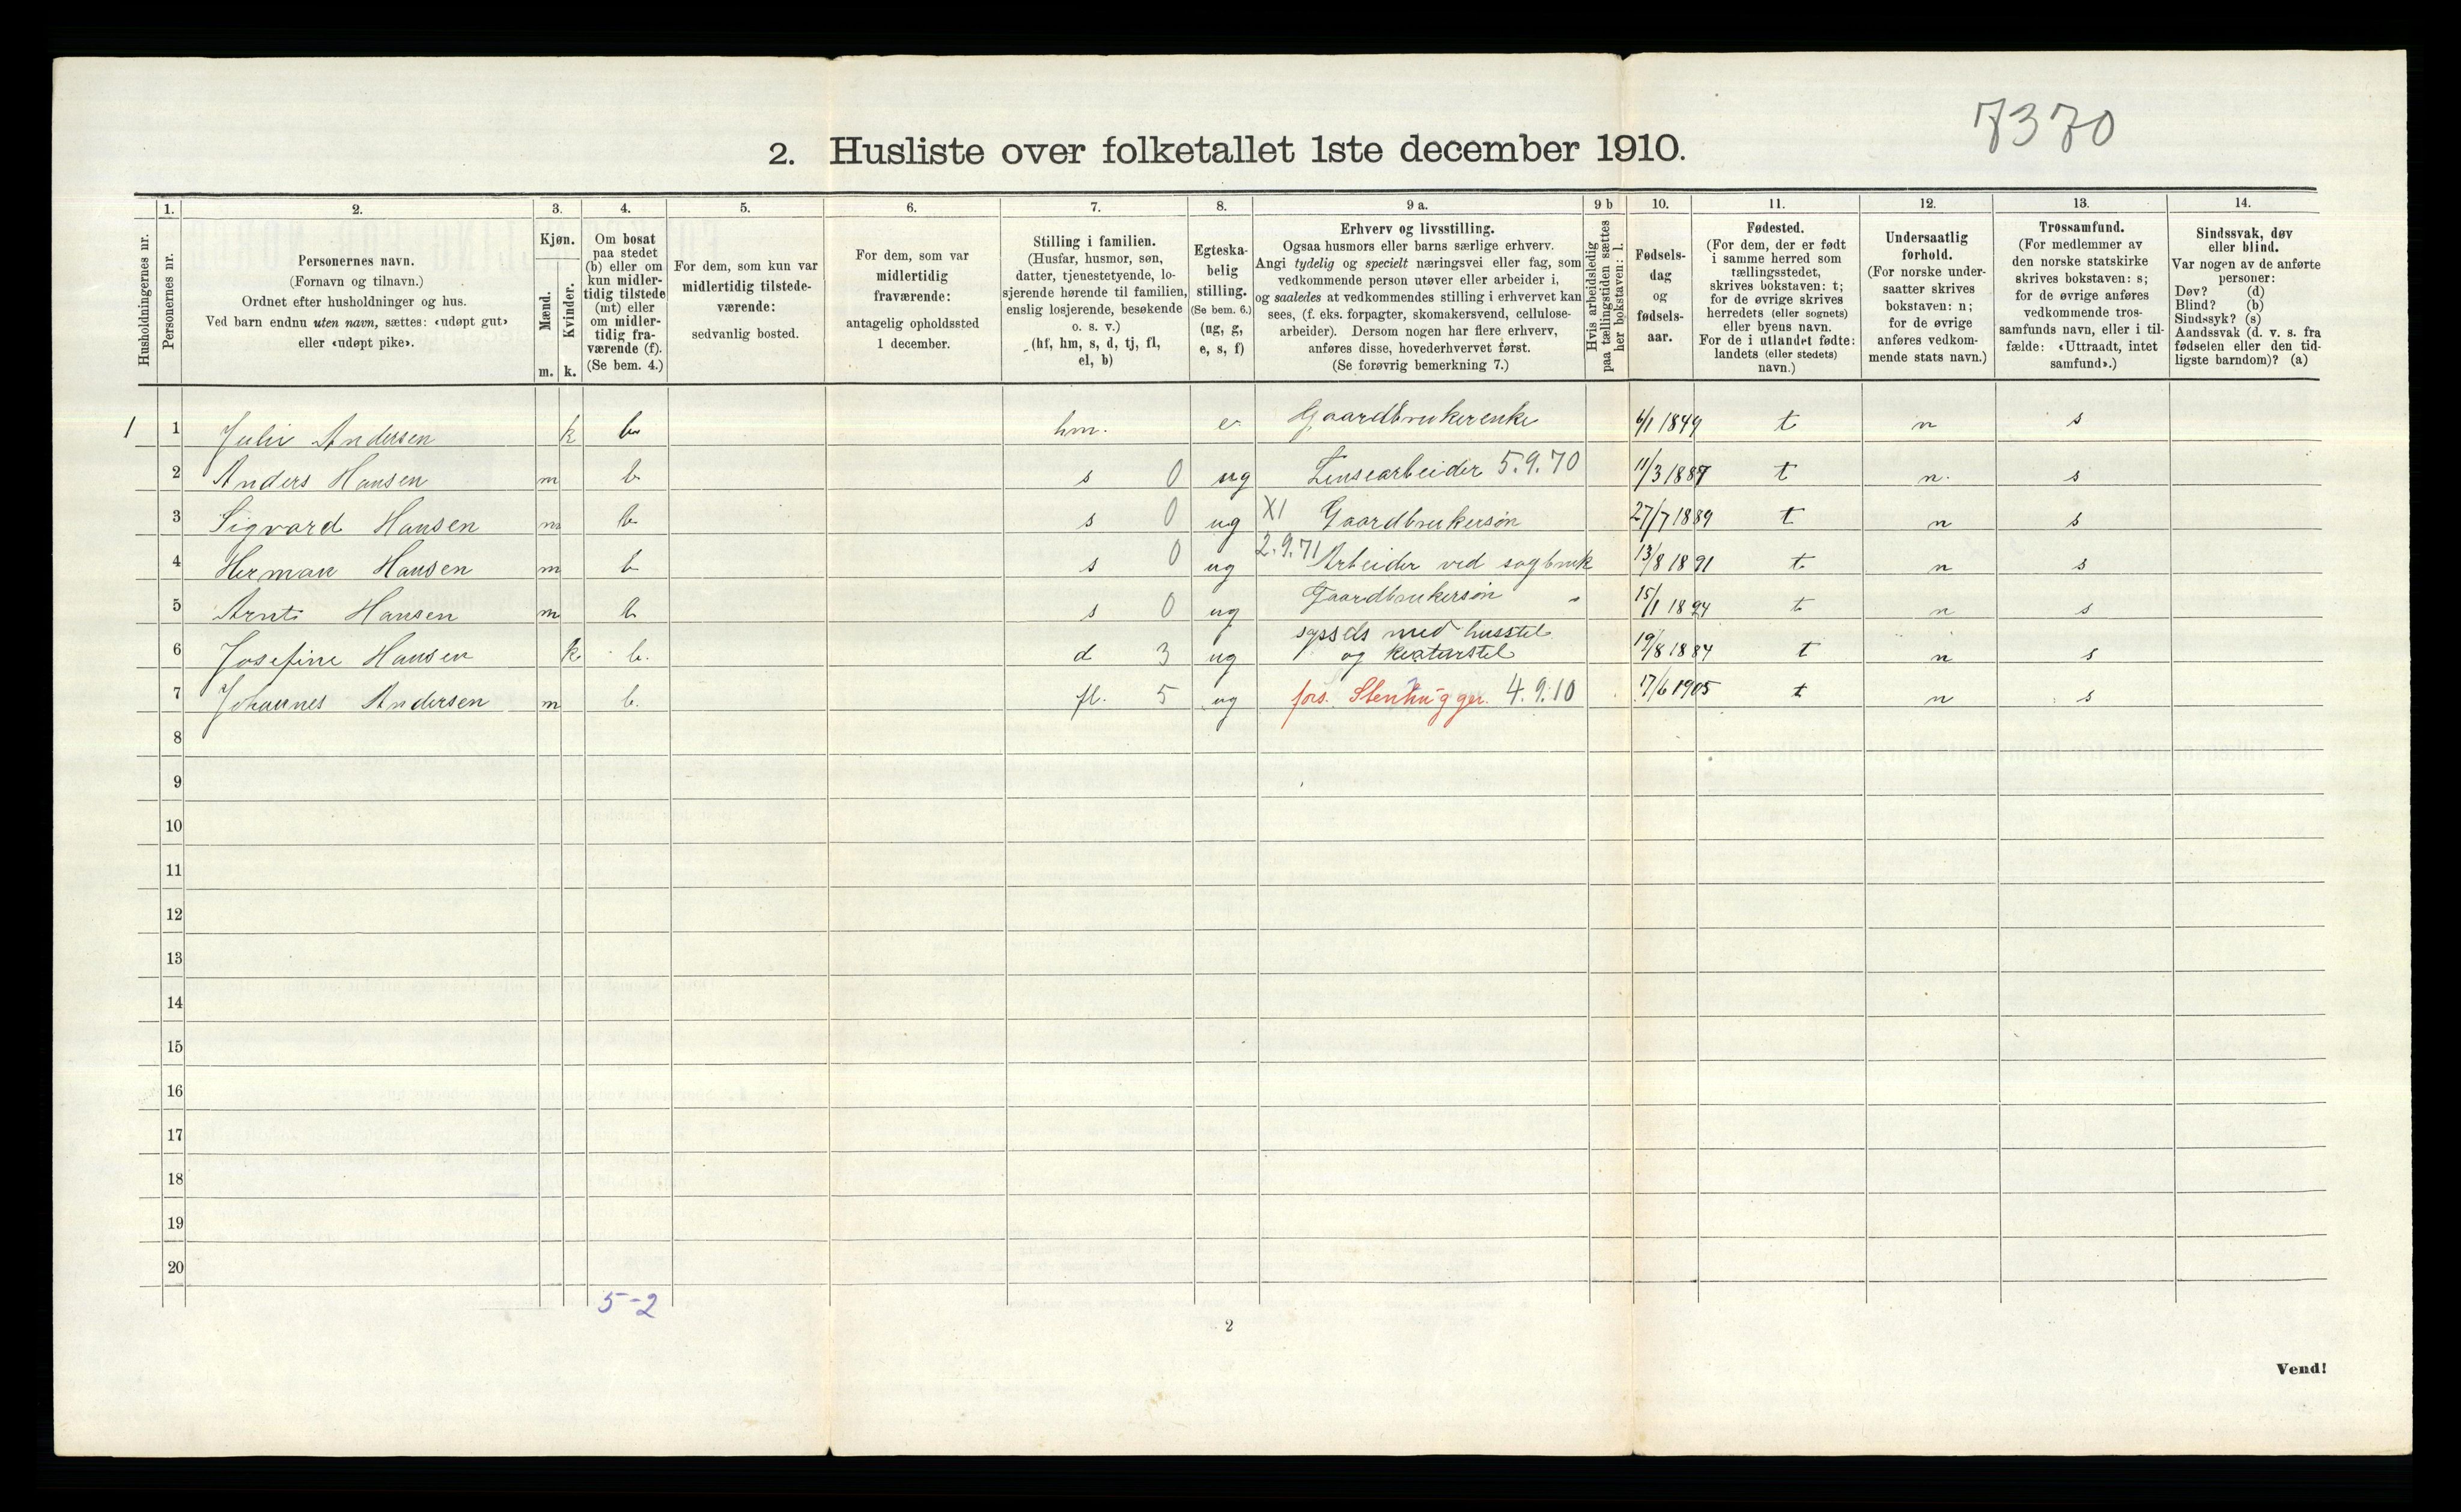 7370
2. Husliste over folketallet 1ste december 1910.
Husholdningernes nr.
1.
Personernes nr.
2.
Personernes navn.
(Fornavn og tilnavn.)
Ordnet efter husholdninger og hus.
Ved barn endnu uten navn, sættes: «udøpt gut»
eller «udøpt pike».
3.
Kjøn.
Mænd.
Kvinder.
m. k.
4.
Om bosat
paa stedet
(b) eller om
kun midler-
tidig tilstede
(mt) eller
om midler-
tidig fra-
værende (f).
(Se bem. 4.)
5.
For dem, som kun var
midlertidig tilstede-
værende:
sedvanlig bosted.
6.
For dem, som var
midlertidig
fraværende:
antagelig opholdssted
1 december.
7.
Stilling i familien.
(Husfar, husmor, søn,
datter, tjenestetyende, lo-
sjerende hørende til familien,
enslig losjerende, besøkende
o. s. v.)
(hf, hm, s, d, tj, fl,
el, b)
8.
Egteska-
belig
stilling.
(Se bem. 6.)
(ug, g,
e, s, f)
9 a.
Erhverv og livsstilling.
Ogsaa husmors eller barns særlige erhverv.
Angi tydelig og specielt næringsvei eller fag, som
vedkommende person utøver eller arbeider i,
og saaledes at vedkommendes stilling i erhvervet kan
sees, (f. eks. forpagter, skomakersvend, cellulose-
arbeider). Dersom nogen har flere erhverv,
anføres disse, hovederhvervet først.
(Se forøvrig bemerkning 7.)
9 b
Hvis arbeidsledig
paa tællingstiden sættes
her bokstaven: l.
10.
Fødsels-
dag
og
fødsels-
aar.
11.
Fødested.
(For dem, der er født
i samme herred som
tællingsstedet,
skrives bokstaven: t;
for de øvrige skrives
herredets (eller sognets)
eller byens navn.
For de i utlandet fødte:
landets (eller stedets)
navn.)
12.
Undersaatlig
forhold.
(For norske under-
saatter skrives
bokstaven: n;
for de øvrige
anføres vedkom-
mende stats navn.)
13.
Trossamfund.
(For medlemmer av
den norske statskirke
skrives bokstaven: s;
for de øvrige anføres
vedkommende tros-
samfunds navn, eller i til-
fælde: «Uttraadt, intet
samfund».)
14.
Sindssvak, døv
eller blind.
Var nogen av de anførte
personer:
Døv? (d)
Blind? (b)
Sindssyk? (s)
Aandssvak (d. v. s. fra
fødselen eller den tid-
ligste barndom)? (a)
1 1 Julie Andersen k b hm. e Gaardbrukerenke 6/1 1849 t n s
2 Anders Hansen m b s 0 ug Lensearbeider 5.9.70 11/3 1887 t n. s
3 Sigvard Hansen m b s 0 ug XI Gaardbrukersøn 27/7 1889 t n s
4 Herman Hansen m b s 0 ug 2.9.71 Arbeider ved sagbruk 13/8 1891 t n s
5 Arnt Hansen m b s 0 ug Gaardbrukersøn 15/1 1894 t n s
6 Josefine Hansen k b. d 3 ug syssels med husstel
og kreaturstel 19/8 1884 t n s
7 Johannes Andersen m b. fl. 5 ug fors. Stenhugger. 4.9.10 17/6 1905 t n s
8
9
10
11
12
13
14
15
16
17
18
19
20
5-2
2
Vend!